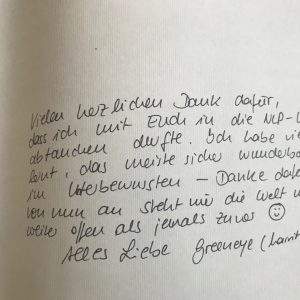 Vielen herzlichen Dank dafür,
dass ich mit Euch in die NLP-W
abtauchen durfte. Ich habe vie
lernt, das meiste sicher wunderba
im Unterbewussten – Danke dafü
von nun an steht mir die Welt u
weiter offen als jemals zuvor ☺
Alles Liebe Greeneye (